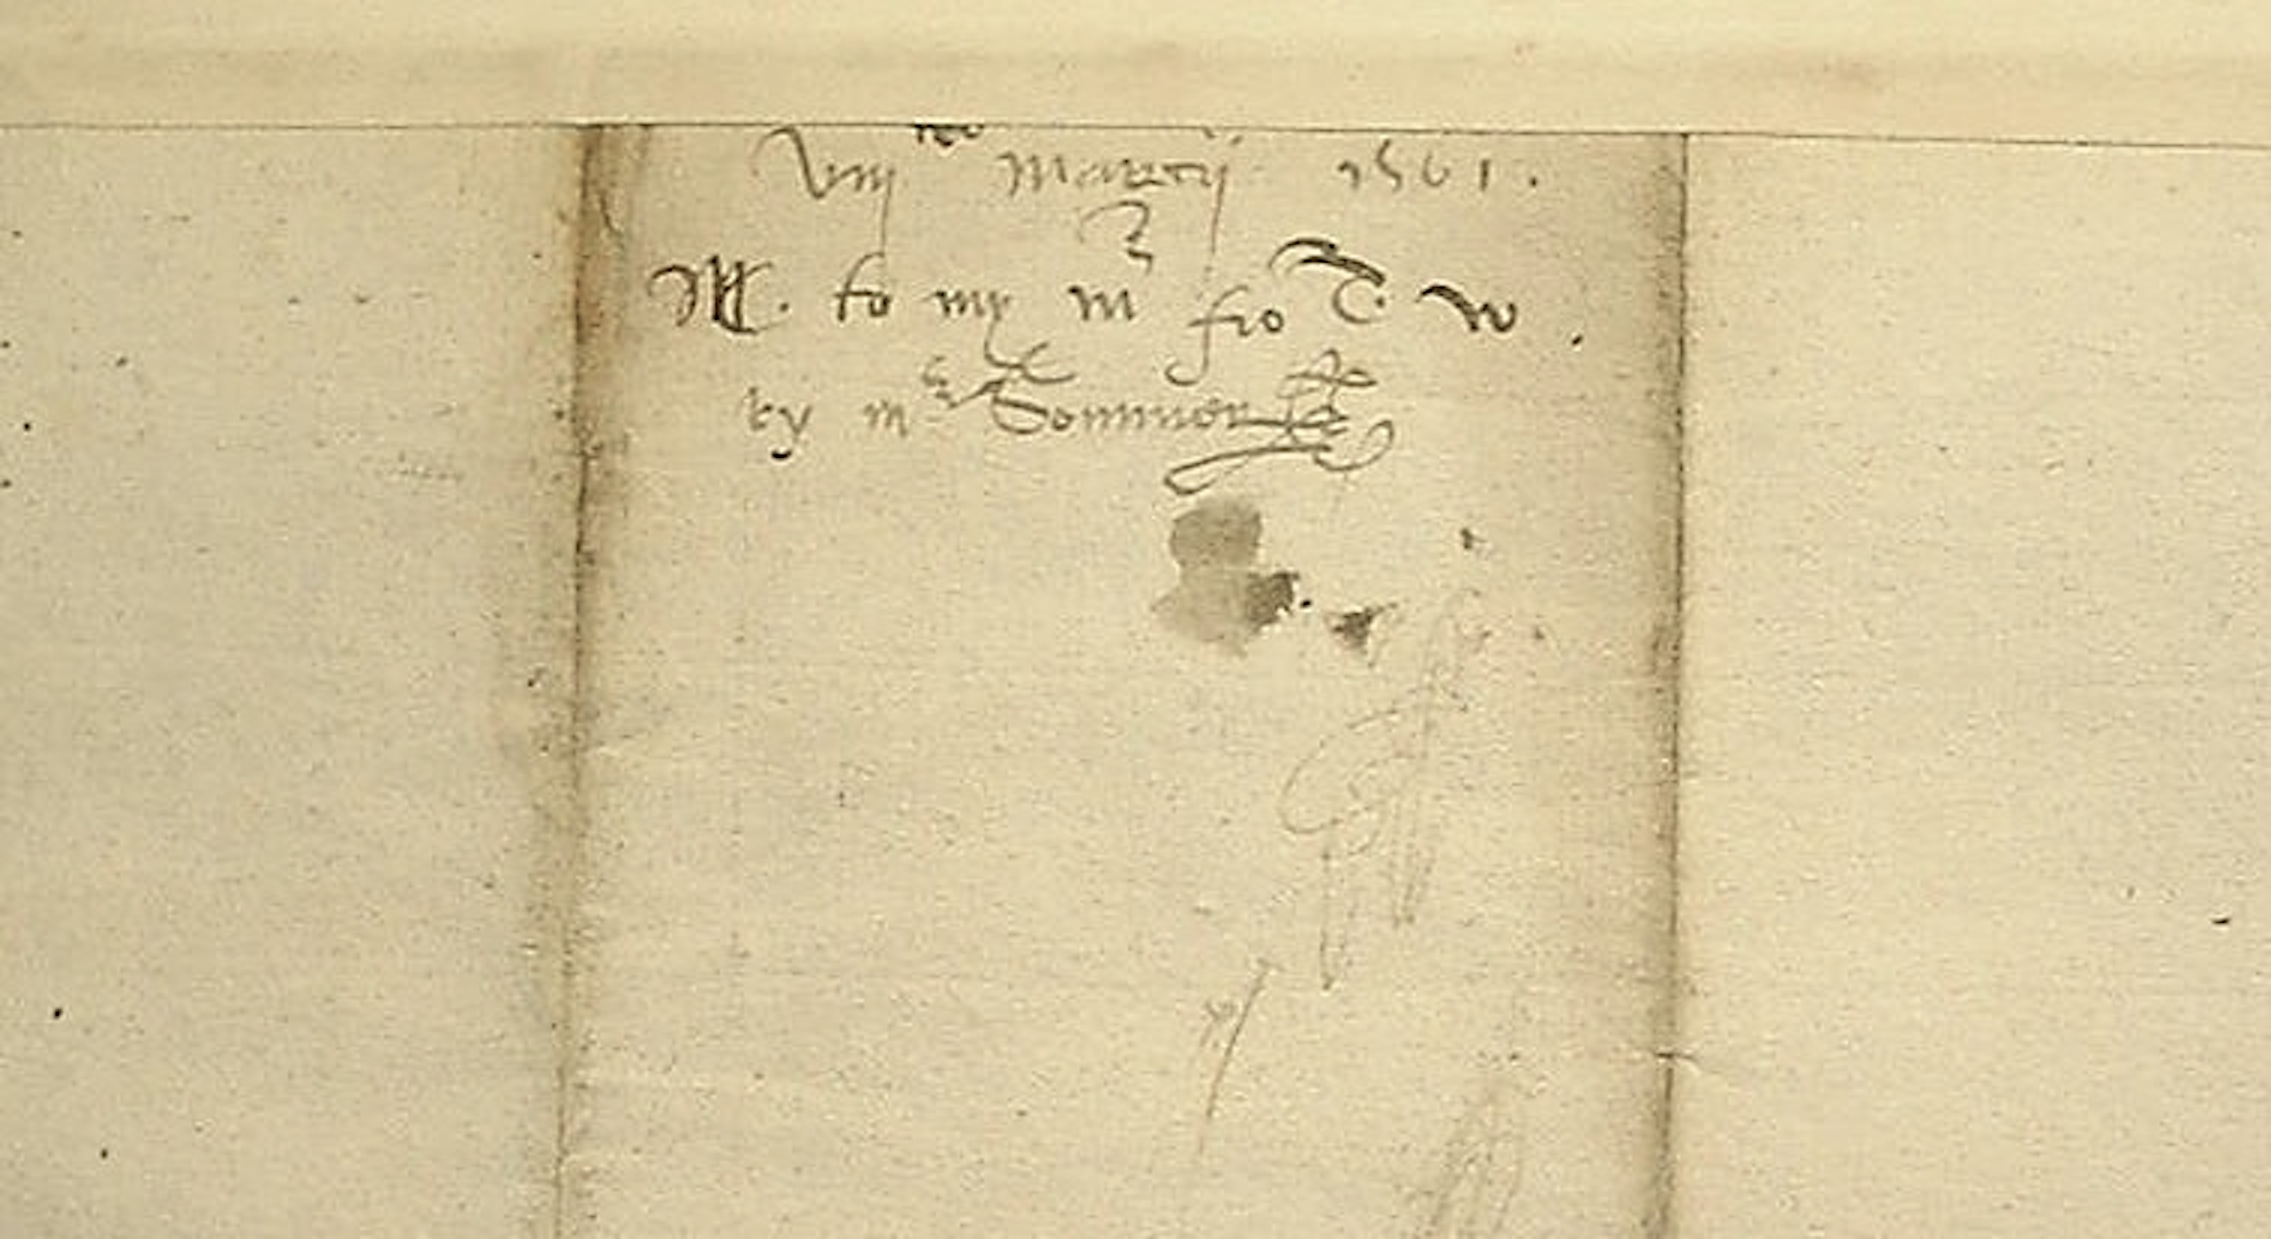 viij Martij 1561.
M. to my m fro T. W.
by mr Sommer